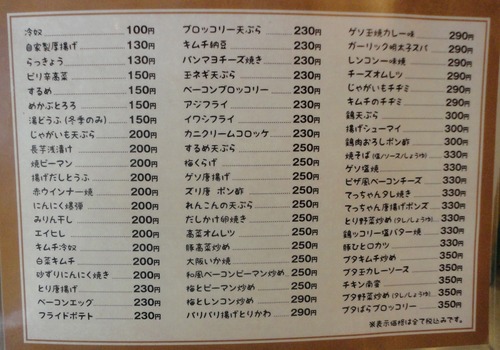 冷奴 100円
自家製厚揚げ 130円
らっきょう 130円
ピリ辛高菜 150円
するめ 150円
めかぶとろろ 150円
湯どうふ(冬季のみ) 150円
じゃがいも天ぷら 200円
長芋浅漬け 200円
焼ピーマン 200円
揚げだしとうふ 200円
赤ウインナー焼 200円
にんにく爆弾 200円
みりん干し 200円
エイヒレ 200円
キムチ冷奴 200円
白菜キムチ 200円
砂ずりにんにく焼き 200円
とり唐揚げ 230円
ベーコンエッグ 230円
フライドポテト 230円
ブロッコリー天ぷら 230円
キムチ納豆 230円
パンマヨチーズ焼き 230円
玉ネギ天ぷら 230円
ベーコンブロッコリー 230円
アジフライ 230円
イワシフライ 230円
カニクリームコロッケ 230円
するめ天ぷら 250円
梅くらげ 250円
ゲソ唐揚げ 250円
ズリ唐 ポン酢 250円
れんこんの天ぷら 250円
だしかけ卵焼き 250円
高菜オムレツ 250円
豚高菜炒め 250円
大阪いか焼 250円
和風ベーコンピーマン炒め 250円
梅とピーマン炒め 250円
梅とレンコン炒め 290円
パリパリ揚げとりかわ 290円
ゲソ玉焼カレー味 290円
ガーリック明太子スパ 290円
レンコン一味焼 290円
チーズオムレツ 290円
じゃがいもチヂミ 290円
キムチのチヂミ 290円
鶏天ぷら 300円
揚げシューマイ 300円
鶏肉おろしポン酢 300円
焼そば(塩/ソース/しょうゆ) 330円
ゲソ塩焼 330円
ピザ風ベーコンチーズ 330円
てっちゃんタレ焼き 330円
てっちゃん唐揚げポンズ 330円
とり野菜炒め(タレ/しょうゆ) 330円
鶏ッコリー塩バター焼 330円
豚ひとロカツ 330円
ブタキムチ炒め 350円
ブタ玉カレーソース 350円
チキン南蛮 350円
ブタ野菜炒め(タレ/しょうゆ) 350円
ブタばらブロッコリー 350円
※表示価格は全て税込みです。